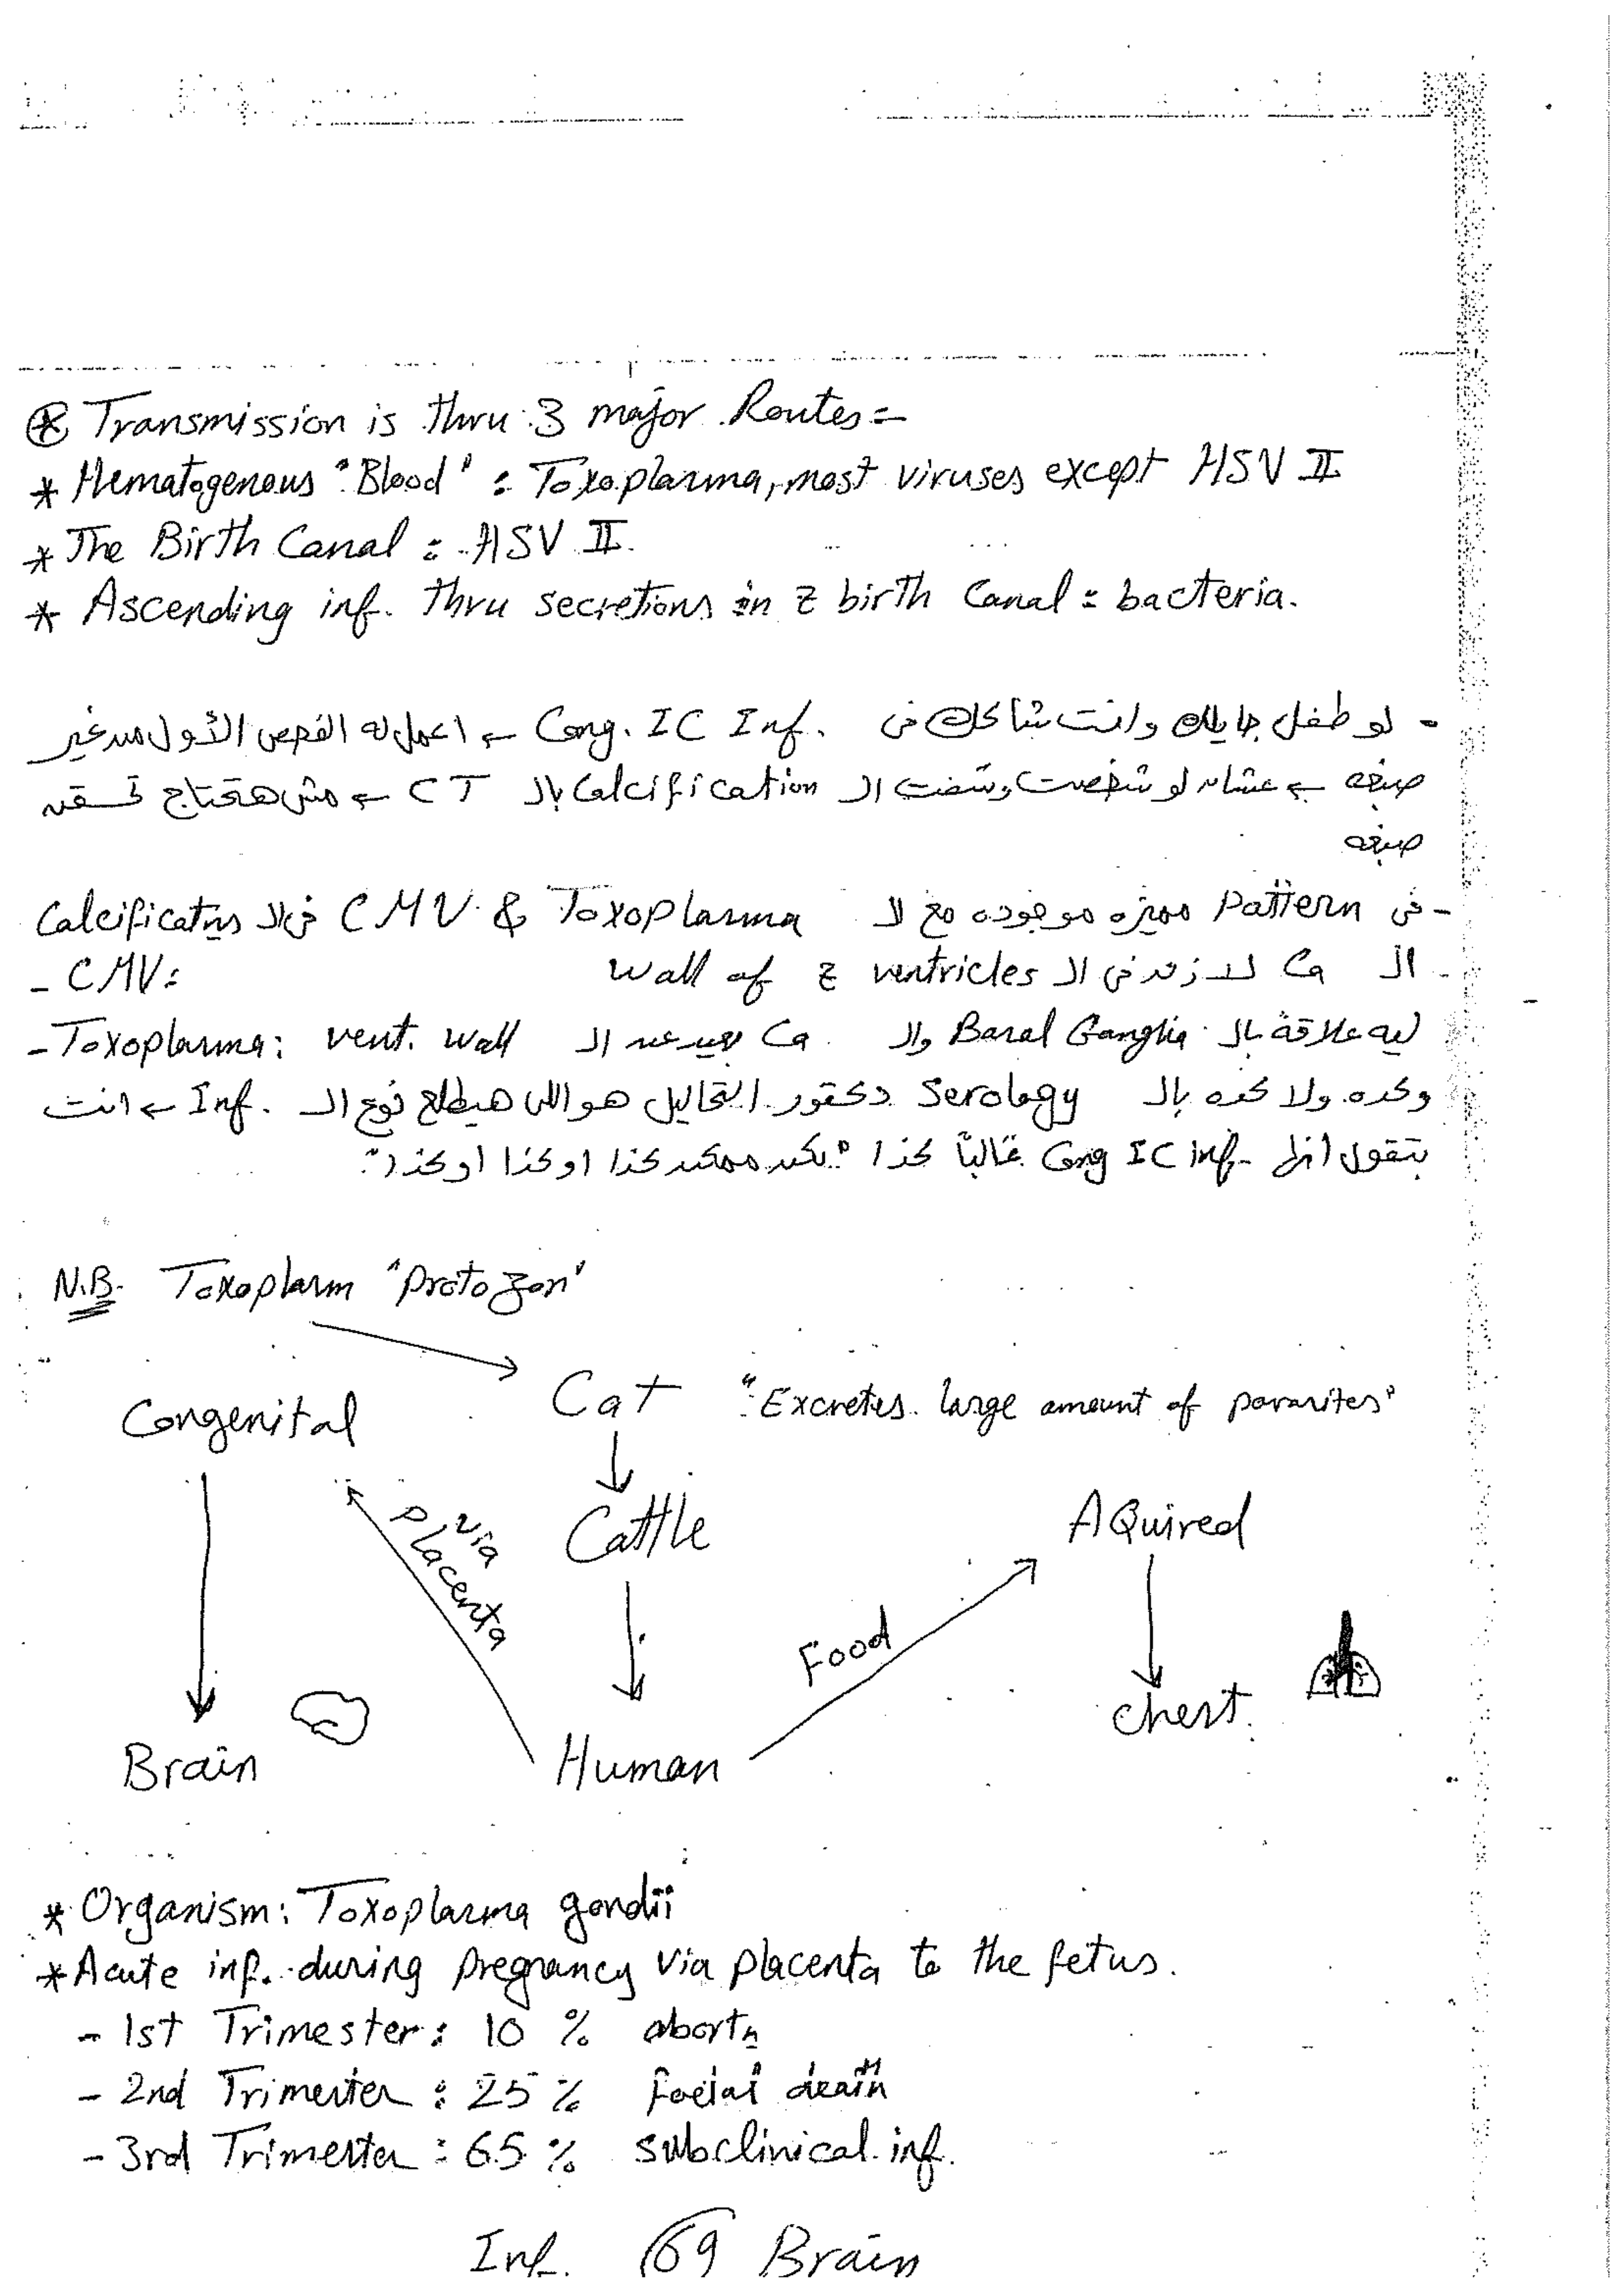 ⊛ Transmission is thru 3 major Routes:-
* Hematogenous "Blood" : Toxoplasma, most viruses except HSV II
* The Birth Canal : HSV II.
* Ascending inf. thru secretions in Z birth Canal : bacteria.
- لو طفل جايلك وانت شاكك فى Cong. IC Inf. ← اعمل له الفحص الأول من غير
صبغه ← عشان لو شخصت وشفت ال Calcification بالـ CT ← مش هتحتاج تحقن
صبغه
- فى Pattern مميزه موجوده مع الـ CMV & Toxoplasma فى الـ Calcificatns
- CMV: الـ Ca لازم فى الـ wall of Z ventricles
- Toxoplasma: ليه علاقة بالـ Basal Ganglia والـ Ca بعيد عن الـ vent. wall
وكده ولا كده بالـ Serology دكتور التحاليل هو اللى هيطلع نوع الـ Inf. ← انت
بتقول انها Cong IC inf. غالباً كذا "لكن ممكن كذا او كذا او كذا".
N.B. Toxoplasm "Protozon"
Cat "Excretes large amount of parasites"
Congenital
Cattle
AQuired
via placenta
Food
Chest.
Brain
Human
* Organism: Toxoplasma gondii
* Acute inf. during pregnancy via placenta to the fetus.
- 1st Trimester: 10 % abortn
- 2nd Trimester : 25 % foetal death
- 3rd Trimester : 65 % subclinical inf.
Inf. 69 Brain